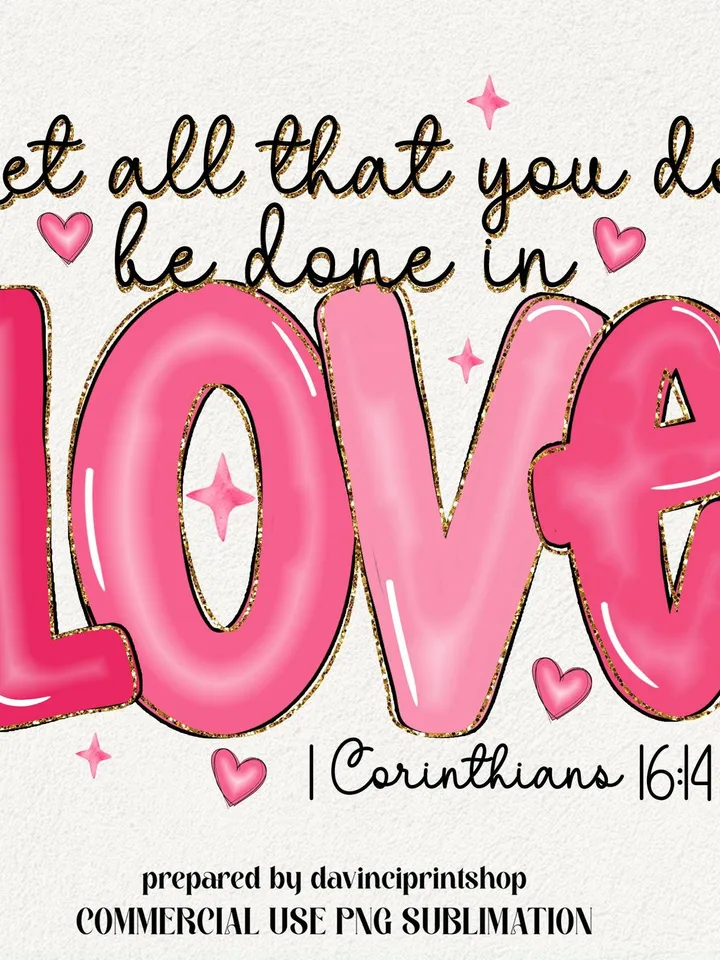 et all that you do
be done in
LOVe
1 Corinthians 16:14
prepared by davinciprintshop
COMMERCIAL USE PNG SUBLIMATION